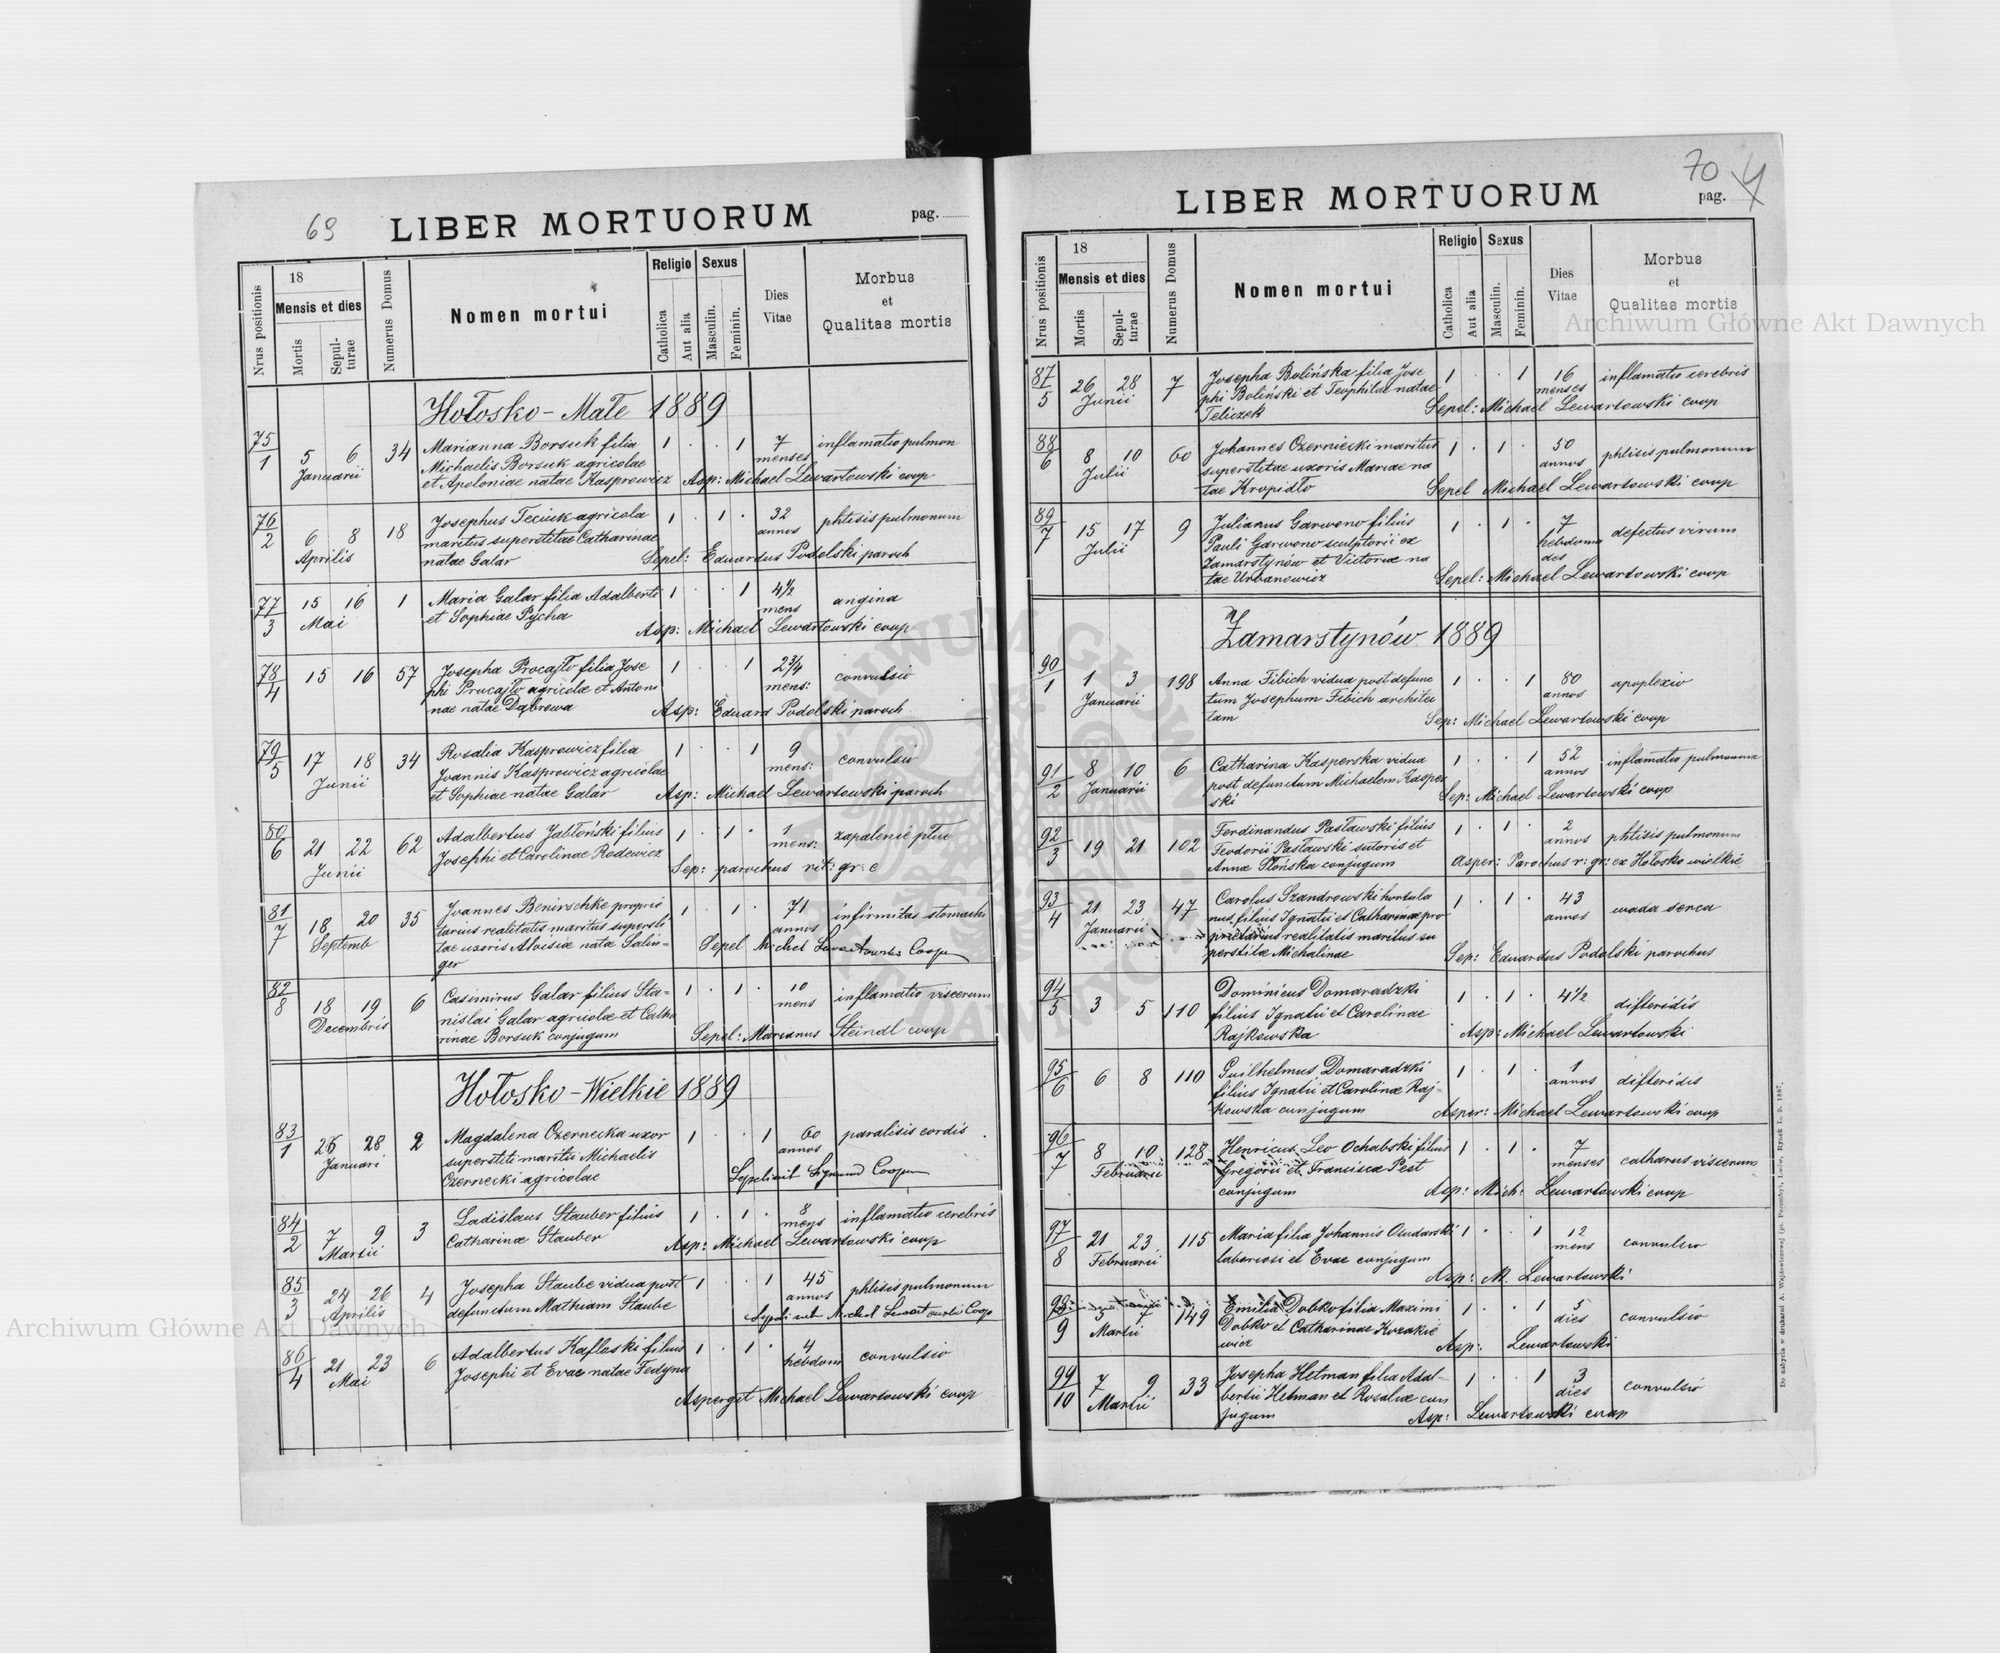 69
LIBER MORTUORUM
pag.
Nrus positionis
18
Mensis et dies
Mortis
Sepulturae
Numerus Domus
Nomen mortui
Religio
Catholica
Aut alia
Sexus
Masculin.
Feminin.
Dies Vitae
Morbus
et
Qualitas mortis
Hołosko-Małe 1889
75/1 5 6 34 Marianna Borsuk filia 1 . . 1 7 inflamatio pulmon
Januarii Michaelis Borsuk agricolae menses
et Apoloniae natae Kasprowicz Asp: Michael Lewartowski coop
76/2 6 8 18 Josephus Teciuk agricola 1 . 1 . 32 phtisis pulmonum
Aprilis maritus superstitae Catharinae annos
natae Galar Sepel: Eduardus Podolski paroch
77/3 15 16 1 Maria Galar filia Adalberti 1 . . 1 4½ angina
Mai et Sophiae Pycha mens
Asp: Michael Lewartowski coop
78/4 15 16 57 Josepha Procajło filia Jose 1 . . 1 2¾ convulsio
phi Procajło agricolae et Antoni mens:
nae natae Dąbrowa Asp: Eduard Podolski paroch
79/5 17 18 34 Rosalia Kasprowicz filia 1 . . 1 9 convulsio
Junii Joannis Kasprowicz agricolae mens:
et Sophiae natae Galar Asp: Michael Lewartowski paroch
80/6 21 22 62 Adalbertus Jabłoński filius 1 . 1 . 1 zapalenie płuc
Junii Josephi et Carolinae Rodewicz mens:
Sep: parochus rit: gr: c
81/7 18 20 35 Joannes Benirschke proprie 1 . 1 . 71 infirmitas stomachi
Septemb tarius realitatis maritus supersti annos
tae uxoris Aloisiae natae Salin- Sepel Michel Lewartowski Coop
ger
82/8 18 19 6 Casimirus Galar filius Sta- 1 . 1 . 10 inflamatio viscerum
Decembris nislai Galar agricolae et Catha mens
rinae Borsuk conjugum Sepel: Marianus Steindl coop
Hołosko-Wielkie 1889
83/1 26 28 2 Magdalena Czernecka uxor 1 . . 1 60 paralisis cordis
Januari superstiti maritii Michaelis annos
Czernecki agricolae Sepelivit Coop
84/2 7 9 3 Ladislaus Stauber filius 1 . 1 . 8 inflamatio cerebris
Martii Catharinae Stauber mens
Asp: Michael Lewartowski coop
85/3 24 26 4 Josepha Staube vidua post 1 . . 1 45 phtisis pulmonum
Aprilis defunctum Mathiam Staube annos
Sepelivit Michel Lewartowski Coop
86/4 21 23 6 Adalbertus Kafleski filius 1 . 1 . 4 convulsio
Mai Josephi et Evae natae Fedyna hebdom
Aspergit Michael Lewartowski coop
70
LIBER MORTUORUM
pag.
Nrus positionis
18
Mensis et dies
Mortis
Sepulturae
Numerus Domus
Nomen mortui
Religio
Catholica
Aut alia
Sexus
Masculin.
Feminin.
Dies Vitae
Morbus
et
Qualitas mortis
87/5 26 28 7 Josepha Bolińska filia Jose 1 . . 1 16 inflamatio cerebris
Junii phi Boliński et Teophilae natae menses
Teliczek Sepel: Michael Lewartowski coop
88/6 8 10 60 Johannes Czerniecki maritus 1 . 1 . 50 phtisis pulmonum
Julii superstitae uxoris Mariae na annos
tae Kropidło Sepel Michael Lewartowski coop
89/7 15 17 9 Julianus Garwono filius 1 . 1 . 7 defectus virum
Julii Pauli Garwono sculptorii ex hebdoma
Zamarstynów et Victoriae na des
tae Urbanowicz Sepel: Michael Lewartowski coop
Z
Zamarstynów 1889
90/1 1 3 198 Anna Fibich vidua post defunc 1 . . 1 80 apoplexio
Januarii tum Josephum Fibich architec annos
tam Sep: Michael Lewartowski coop
91/2 8 10 6 Catharina Kasperska vidua 1 . . 1 52 inflamatio pulmonum
Januarii post defunctum Michaelem Kasper annos
ski Sep: Michael Lewartowski coop
92/3 19 21 102 Ferdinandus Pasławski filius 1 . 1 . 2 phtisis pulmonum
Feodorii Pasławski sutoris et annos
Annae Słońska conjugum Asper: Parochus r: gr: ex Hołosko wielkie
93/4 21 23 47 Carolus Szandrowski hortula 1 . 1 . 43 wada serca
Januarii nus, filius Ignatii et Catharinae pro annos
prietarius realitatis maritus su
perstitae Michalinae Sep: Eduardus Podolski parochus
94/5 3 5 110 Dominicus Domaradzki 1 . 1 . 4½ difteridis
filius Ignatii et Carolinae
Rajkowska Asp: Michael Lewartowski
95/6 6 8 110 Guilhelmus Domaradzki 1 . 1 . 1 difteridis
filius Ignatii et Carolinae Raj- annos
kowska conjugum Asper: Michael Lewartowski coop
96/7 8 10 128 Henricus Leo Ochabski filius 1 . 1 . 7 catharus viscerum
Februarii Gregorii et Francisca Pest menses
conjugum Asp: Mich: Lewartowski coop
97/8 21 23 115 Maria filia Johannis 1 . . 1 12 convulsio
Februarii laboriosi et Evae conjugum mens
Asp: M. Lewartowski
98/9 5 7 149 Emilia Dobko filia Maximi 1 . . 1 5 convulsio
Martii Dobko et Catharinae Kozakie dies
wicz Asp: Lewartowski
99/10 7 9 33 Josepha Hetman filia Adal- 1 . . 1 3 convulsio
Martii bertii Hetman et Rosaliae con dies
jugum Asp: Lewartowski coop
Archiwum Główne Akt Dawnych
Archiwum Główne Akt Dawnych
ARCHIWUM GŁÓWNE AKT DAWNYCH